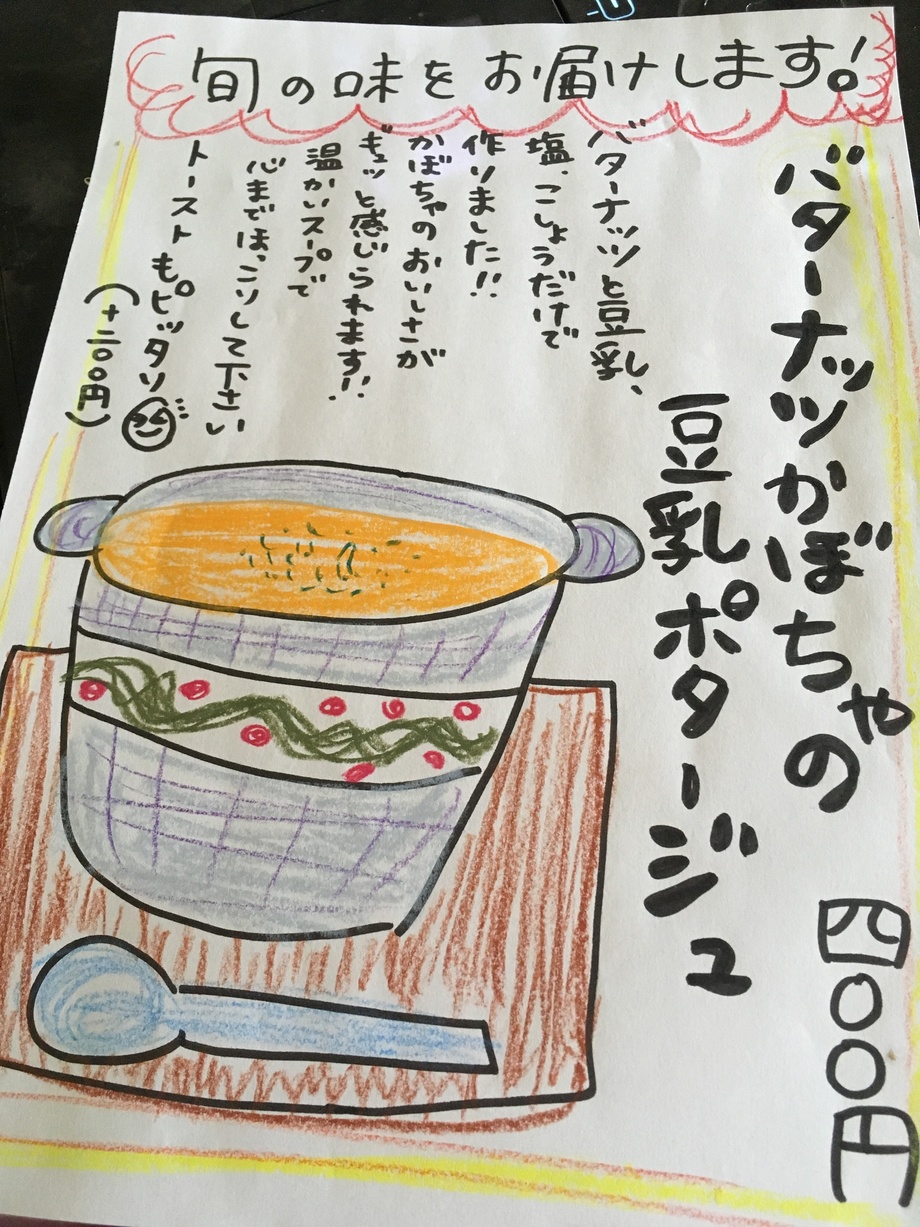 旬の味をお届けします!
バターナッツかぼちゃの
豆乳ポタージュ
四〇〇円
バターナッツと豆乳、
塩、こしょうだけで
作りました!!
かぼちゃのおいしさが
ギュッと感じられます!!
温かいスープで
心までほっこりして下さい
トーストもピッタリ
(十二〇〇円)